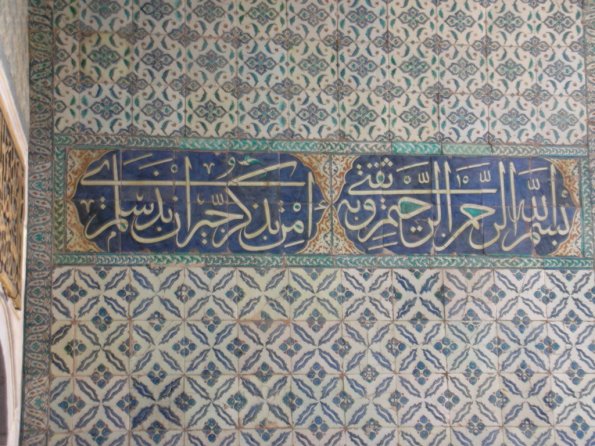 بسم الله الرحمن الرحيم وبه ثقتي
امن تذكر جيران بذي سلم